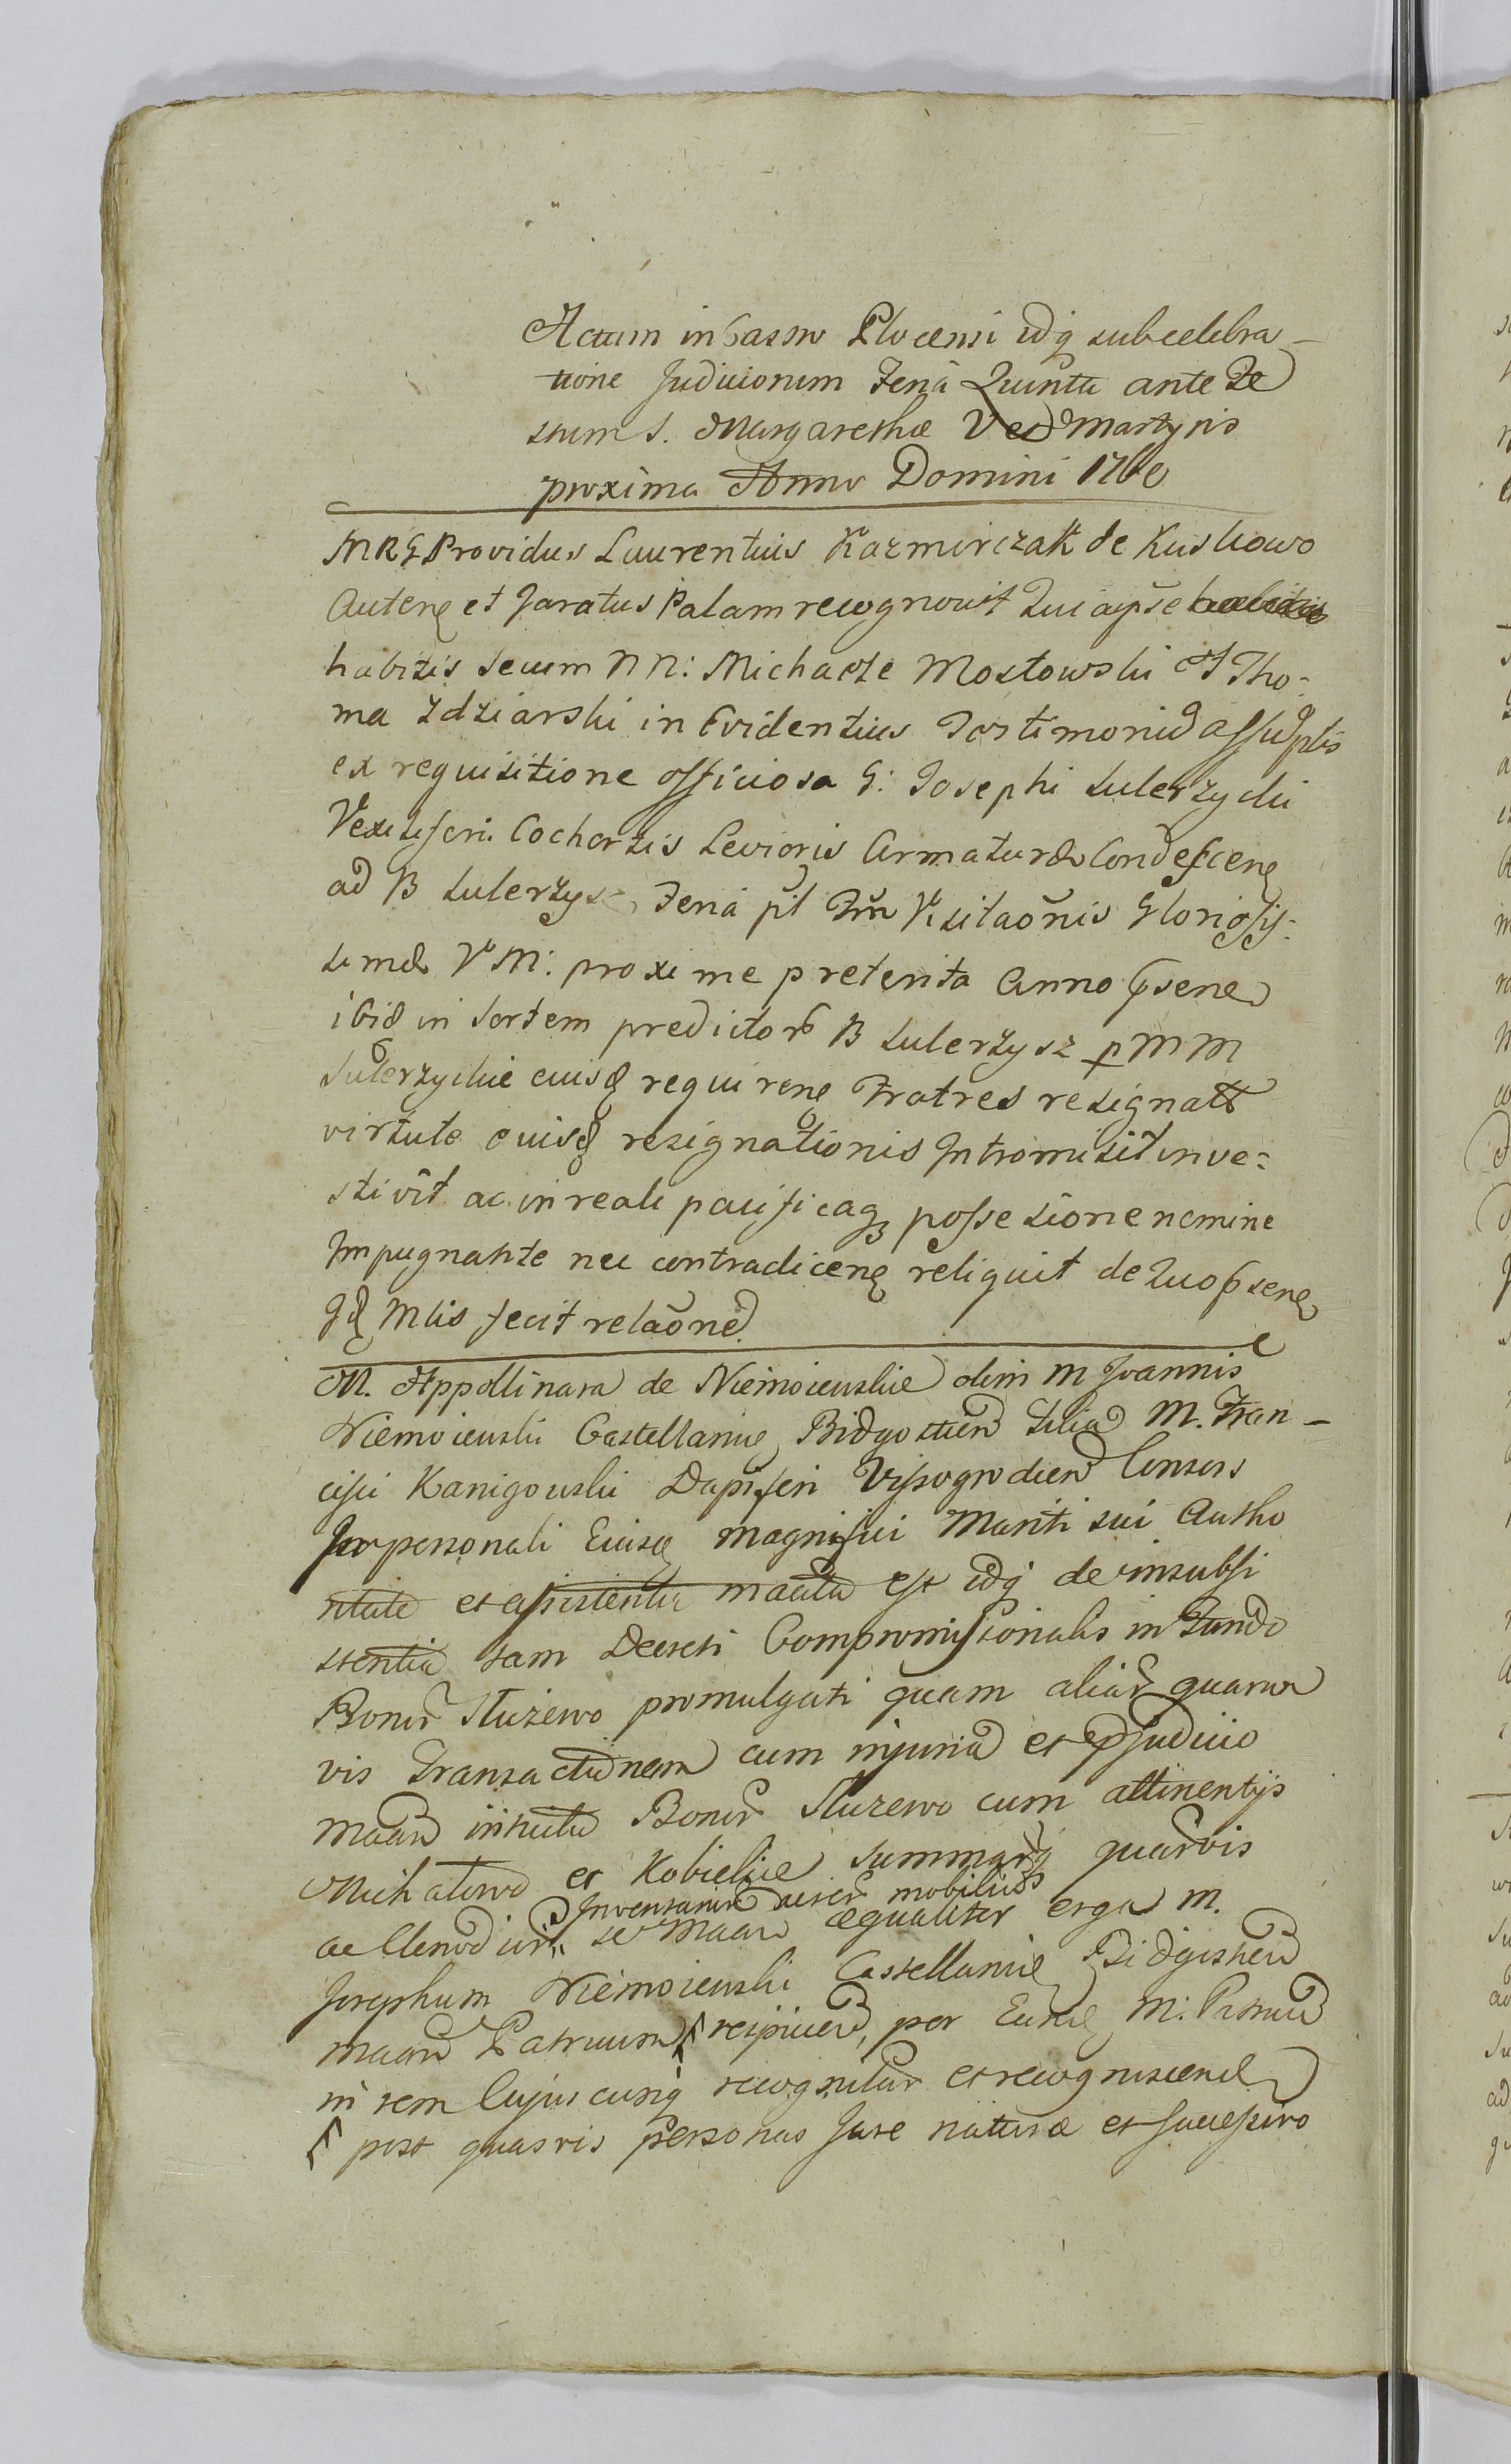 Actum in Castro Plocensi idq sub celebra-
tione Judiciorum Feria Quinta ante Fe
stum S. Margarethæ V et Martyris
proxima Anno Domini 1760
MRG Providus Laurentius Kazmirczak de Kuskowo
Auten et Juratus Palam recognovit Quia ipse
habitis secum NN: Michaele Mostowski et Tho-
ma Zdziarski in Evidentius Testimoniu assuptis
ex requisitione officiosa G: Josephi Sulerzycki
Vexiliferi Cochortis Levioris Armaturæ Condescen
ad B Sulerzysz Feria pt Ftm Visitaonis Gloriosis-
simæ V M: proxime preterita Anno psene
ibid in Sortem predictor B Sulerzysz p MM
Sulerzyckie eiusd requiren Fratres resignatt
virtute eiusd resignationis Intromisit inve-
stivit ac in reali pacificaq possesione nemine
Impugnante nec contradicen reliquit de Quo psens
Mlis fecit relaone
M. Appollinara de Niemoiewskie olim M Joannis
Niemoiewski Castellani Bidgostien Filia M. Fran-
cisci Kanigowski Dapiferi Vissogrodien Consors
In personali Eiusd magnifici Mariti sui Autho
ritate et assistentia maata est idq de insubsi
stentia tam Decreti Compromissionalis in Fundo
Bonor Służewo promulgati quam aliar quarum
vis Transactionem cum injuria et pjudicio
maan intuitu Bonor Służewo cum attinentijs
Michałowo et Kobielice Summarq quarvis
Inventarior auser mobiliu
ac Clenodior se Maan æqualiter erga M.
Josephum Niemoiewski Castellani Bidgostien
maan Patruum respicien, per Eund M. Patruu
in rem Cujuscunq recognitar et recognoscend
post quasvis personas Jure naturæ et Successivo